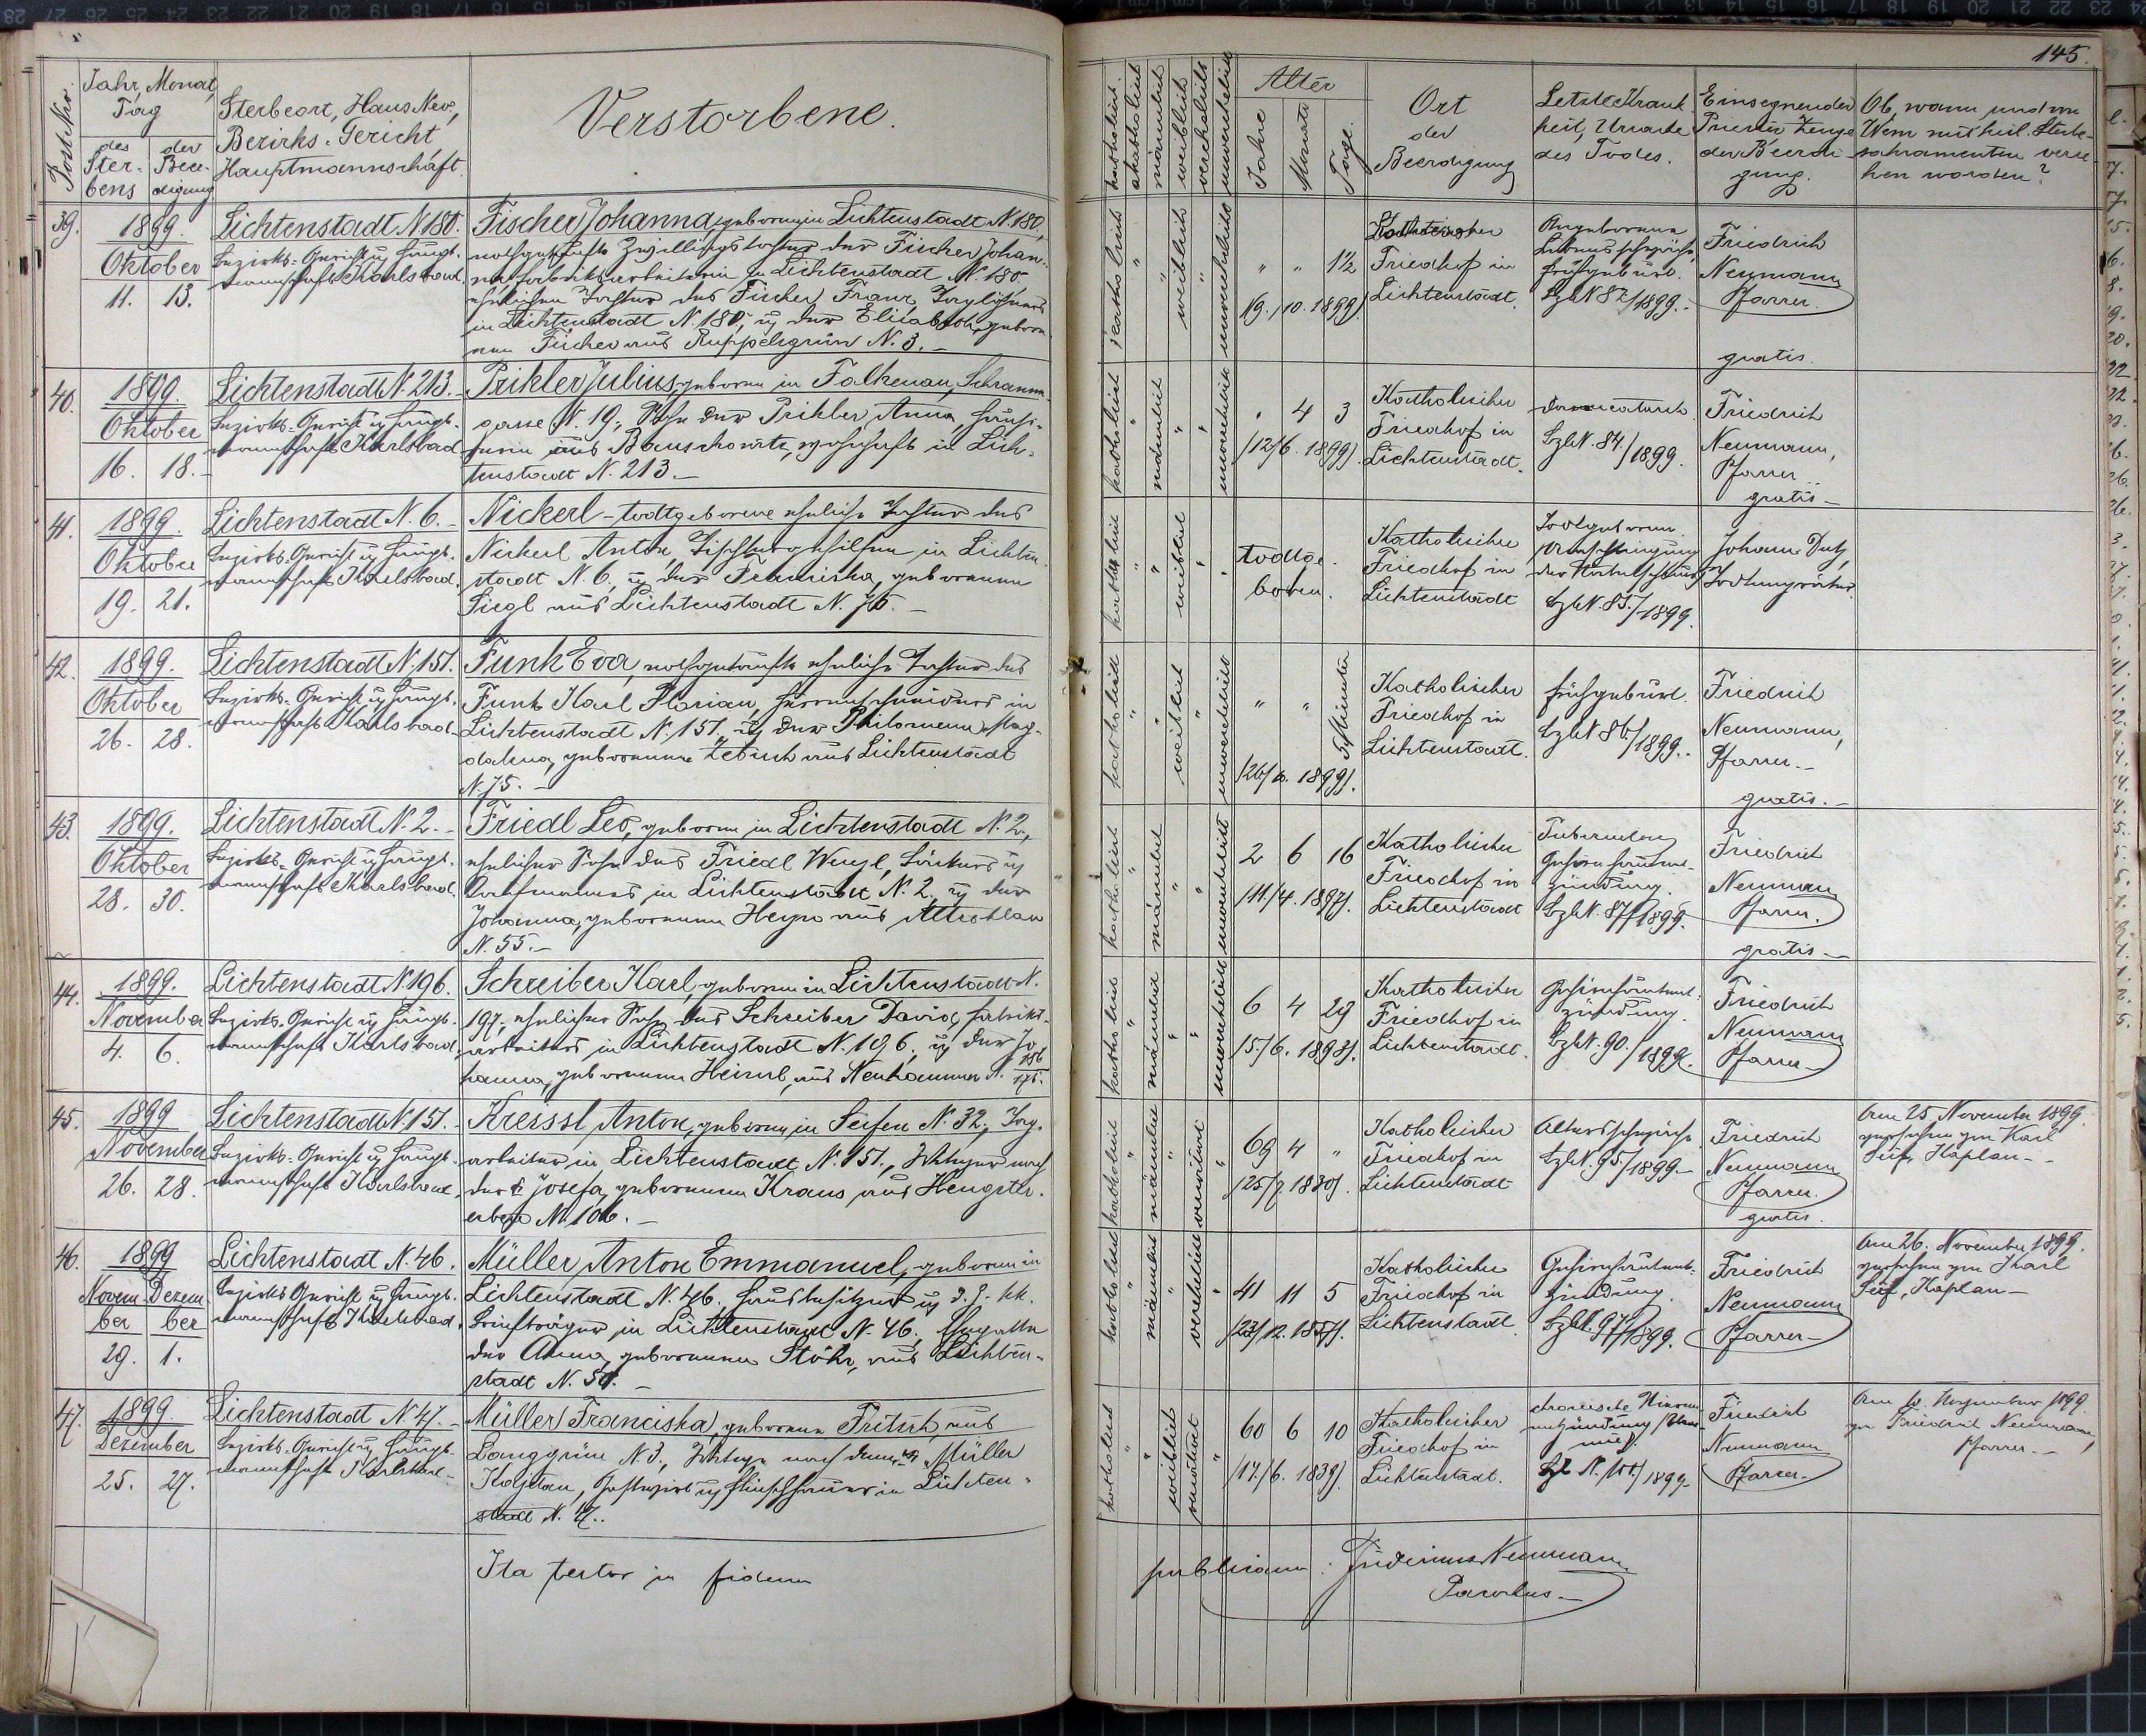 145.
Post Nro.
Jahr, Monat,
Tag
des
Ster-
bens
der
Beer-
digung
Sterbeort, Haus Nro,
Bezirks-Gericht
Hauptmannschaft
Verstorbene.
katholisch.
akatholisch
männlich
weiblich
verehelicht
unverehelicht
Alter
Jahre
Monate
Tage.
Ort
der
Beerdigung
Letzte Krank
heit, Ursache
des Todes.
Einsegnender
Priester Zeuge
der Beerdi-
gung.
Ob, wann und von
Wem mit heil. Sterbe-
sakramenten verse
hen worden?
39.
1899.
Oktober
11. 13.
Lichtenstadt N 180.
Bezirks-Gericht u Haupt-
mannschaft Karlsbad
Fischer Johanna, geboren in Lichtenstadt N. 180,
nothgetaufte Zwillingstochter der Fischer Johan-
na Fabriksarbeiterin in Lichtenstadt N. 180
ehelichen Tochter des Fischer Franz, Taglöhners
in Lichtenstadt N. 180, u der Elisabeth, gebore-
nen Fischer aus Ruppelsgrün N. 3.
katholisch " " weiblich " unverehelicht
" " 1½
/9./10. 1899/.
Katholischer
Friedhof in
Lichtenstadt.
Angeborene
Lebensschwäche,
Frühgeburt.
BzbN 82/1899.
Friedrich
Neumann
Pfarrer.
gratis.
40.
1899.
Oktober
16. 18.
Lichtenstadt N. 213.
Bezirks-Gericht u Haupt-
mannschaft Karlsbad
Prikler Julius, geboren in Falkenau, Schramm-
gasse N. 19., Sohn der Prikler Anna,
aus wohnhaft in Lich-
tenstadt N. 213.
katholisch " männlich " " unverehelicht
" 4 3
/12/6. 1899/.
Katholischer
Friedhof in
Lichtenstadt.
BzbN. 84./1899.
Friedrich
Neumann,
Pfarrer
gratis
41.
1899.
Oktober
19. 21.
Lichtenstadt N. 6.
Bezirks-Gericht u Haupt-
mannschaft Karlsbad.
Nickerl - todtgeborene eheliche Tochter des
Nickerl Anton, Tischlergehilfen in Lichten-
stadt N. 6, u der Franziska, geborenen
Siegl aus Lichtenstadt N. 75.
katholisch " " weiblich " "
todtge-
boren.
Katholischer
Friedhof in
Lichtenstadt
Todtgeboren
/Umschlingung
der Nabelschnur/
BzbN. 85./1899.
Johann Dutz,
Todtengräber.
42.
1899.
Oktober
26. 28.
Lichtenstadt N. 151.
Bezirks-Gericht u Haupt-
mannschaft Karlsbad
Funk Eva, nothgetaufte eheliche Tochter des
Funk Karl Florian, Herrenschneiders in
Lichtenstadt N. 151, u der Philomena Mag-
dalena, geborenen Zebisch aus Lichtenstadt
N. 75.
katholisch " " weiblich " unverehelicht
" " 5 Minuten
/26/10. 1899/.
Katholischer
Friedhof in
Lichtenstadt.
Frühgeburt.
BzbN 86./1899.
Friedrich
Neumann,
Pfarrer.
gratis.
43.
1899.
Oktober
28. 30.
Lichtenstadt N. 2.
Bezirks-Gericht u Haupt-
mannschaft Karlsbad.
Friedl Leo, geboren in Lichtenstadt N. 2,
ehelicher Sohn des Friedl Wenzl, Bäckers u
Kaufmannes in Lichtenstadt N. 2, u der
Johanna, geborenen Heyer aus Altrohlau
N. 55.
katholisch " männlich " " unverehelicht
2 6 16
/11/4. 1897/.
Katholischer
Friedhof in
Lichtenstadt
Gehirnhautent-
zündung.
BzbN. 87/1899.
Friedrich
Neumann
Pfarrer.
gratis
44.
1899.
November
4. 6.
Lichtenstadt N 196.
Bezirks-Gericht u Haupt-
mannschaft Karlsbad
Schreiber Karl, geboren in Lichtenstadt N.
197, ehelicher Sohn des Schreiber David, Fabriks-
arbeiters in Lichtenstadt N. 196, u der Jo-
hanna, geborenen Heinrl, aus Neuhammer N. 156/175.
katholisch " männlich " " unverehelicht
6 4 29
/5./6. 1893/.
Katholischer
Friedhof in
Lichtenstadt.
Gehirnhautent-
zündung.
BzbN. 90./1899.
Friedrich
Neumann
Pfarrer
45.
1899
November
26. 28.
Lichtenstadt N 151.
Bezirks-Gericht u Haupt-
mannschaft Karlsbad
Kreissl Anton, geboren in Seifen N. 32., Tag-
arbeiter in Lichtenstadt N. 151., Witwer nach
der Josefa, geborenen Kraus aus Hengster-
erben N. 106.
katholisch " männlich " verwitwet "
69 4 "
/25/7. 1830/.
Katholischer
Friedhof in
Lichtenstadt
Altersschwäche
BzbN. 95./1899
Friedrich
Neumann
Pfarrer.
gratis.
Am 25 November 1899.
versehen von Karl
Seif, Kaplan
46.
1899
Novem-
ber
Dezem
ber
29. 1.
Lichtenstadt N. 46.
Bezirks Gericht u Haupt-
mannschaft Karlsbad.
Müller Anton Emmanuel, geboren in
Lichtenstadt N. 46, Hausbesitzer u d. Z. kk.
Briefträger in Lichtenstadt N. 46, Ehegatte
der Anna, geborenen Stöhr, aus Lichten-
stadt N. 50.
katholisch " männlich " verehelicht "
41 11 5
/23/12. 1857/.
Katholischer
Friedhof in
Lichtenstadt
Gehirnhautent-
zündung.
BzbN. 97/1899.
Friedrich
Neumann
Pfarrer
Am 26. November 1899.
versehen von Karl
Seif, Kaplan
47.
1899.
Dezember
25. 27.
Lichtenstadt N. 47.
Bezirks-Gericht u Haupt-
mannschaft Karlsbad
Müller Franciska, geborene Fritsch, aus
Langgrün N. 3., Witwe nach dem Müller
Kajetan, Gastwirt u Fleischhauer in Lichten-
stadt N. 47.
katholisch " " weiblich verwitwet "
60 6 10
/17./6. 1839/.
Katholischer
Friedhof in
Lichtenstadt.
chronische Nieren-
entzündung
Bzb N. 101/1899
Friedrich
Neumann
Pfarrer
Am 10. Dezember 1899.
von Friedrich Neumann,
Pfarrer.
Ita testor in fidem
publicam: Fridericus Neumann
Parochus